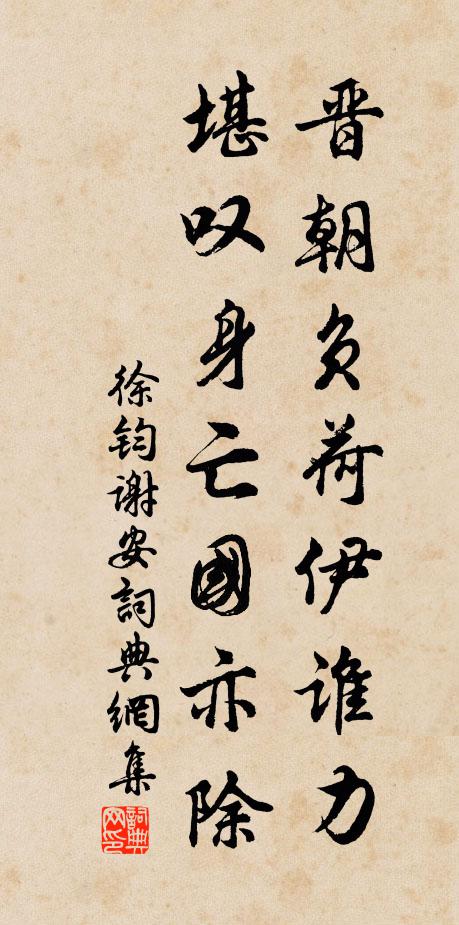 晋朝负荷伊谁力
堪叹身亡國亦除
徐钧谢安詞典網集
詞典网印